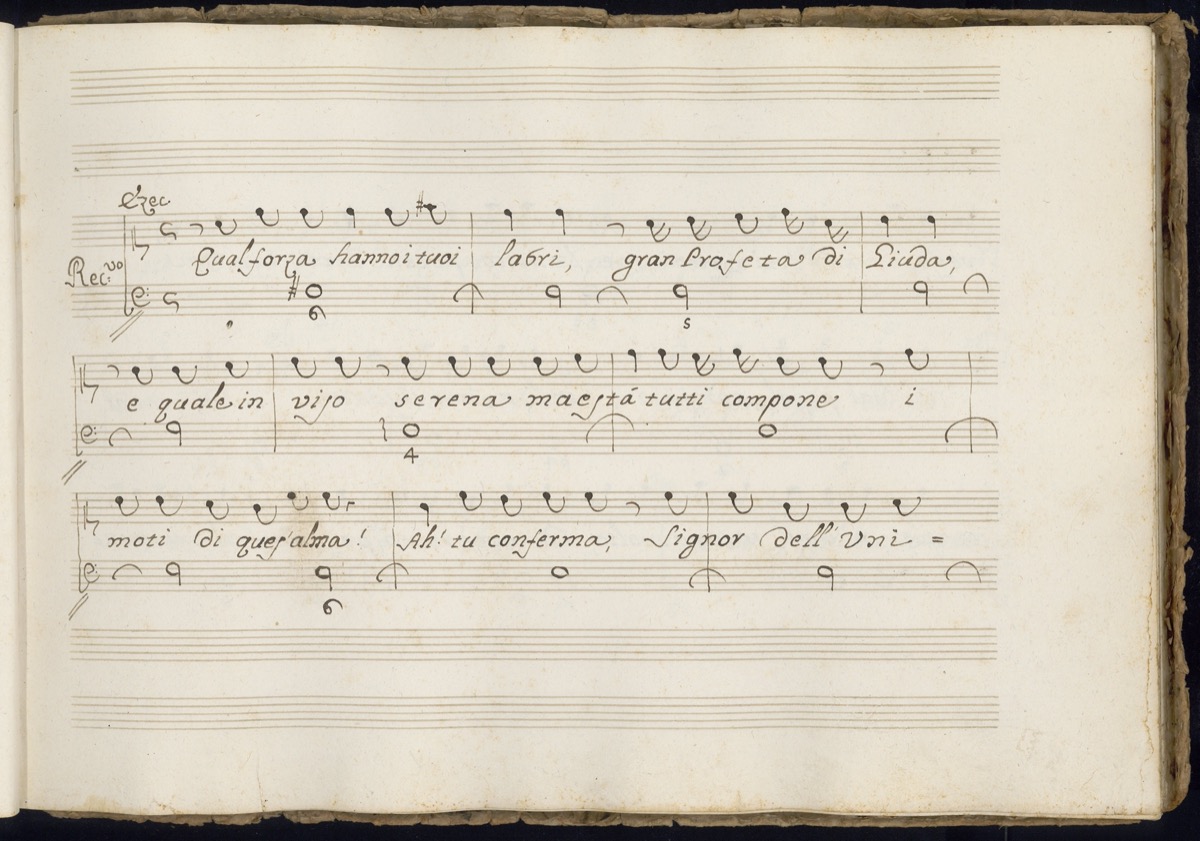 Ezec
Rec:vo Qual forza hanno i tuoi labri, gran Profeta di Giuda,
6 5
e quale in viso serena maestá tutti compone i
4
moti di quest'alma! Ah! tu conferma, Signor dell' Vni =
6